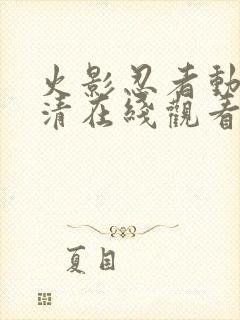 火影忍者動
清在綫觀看
夏目